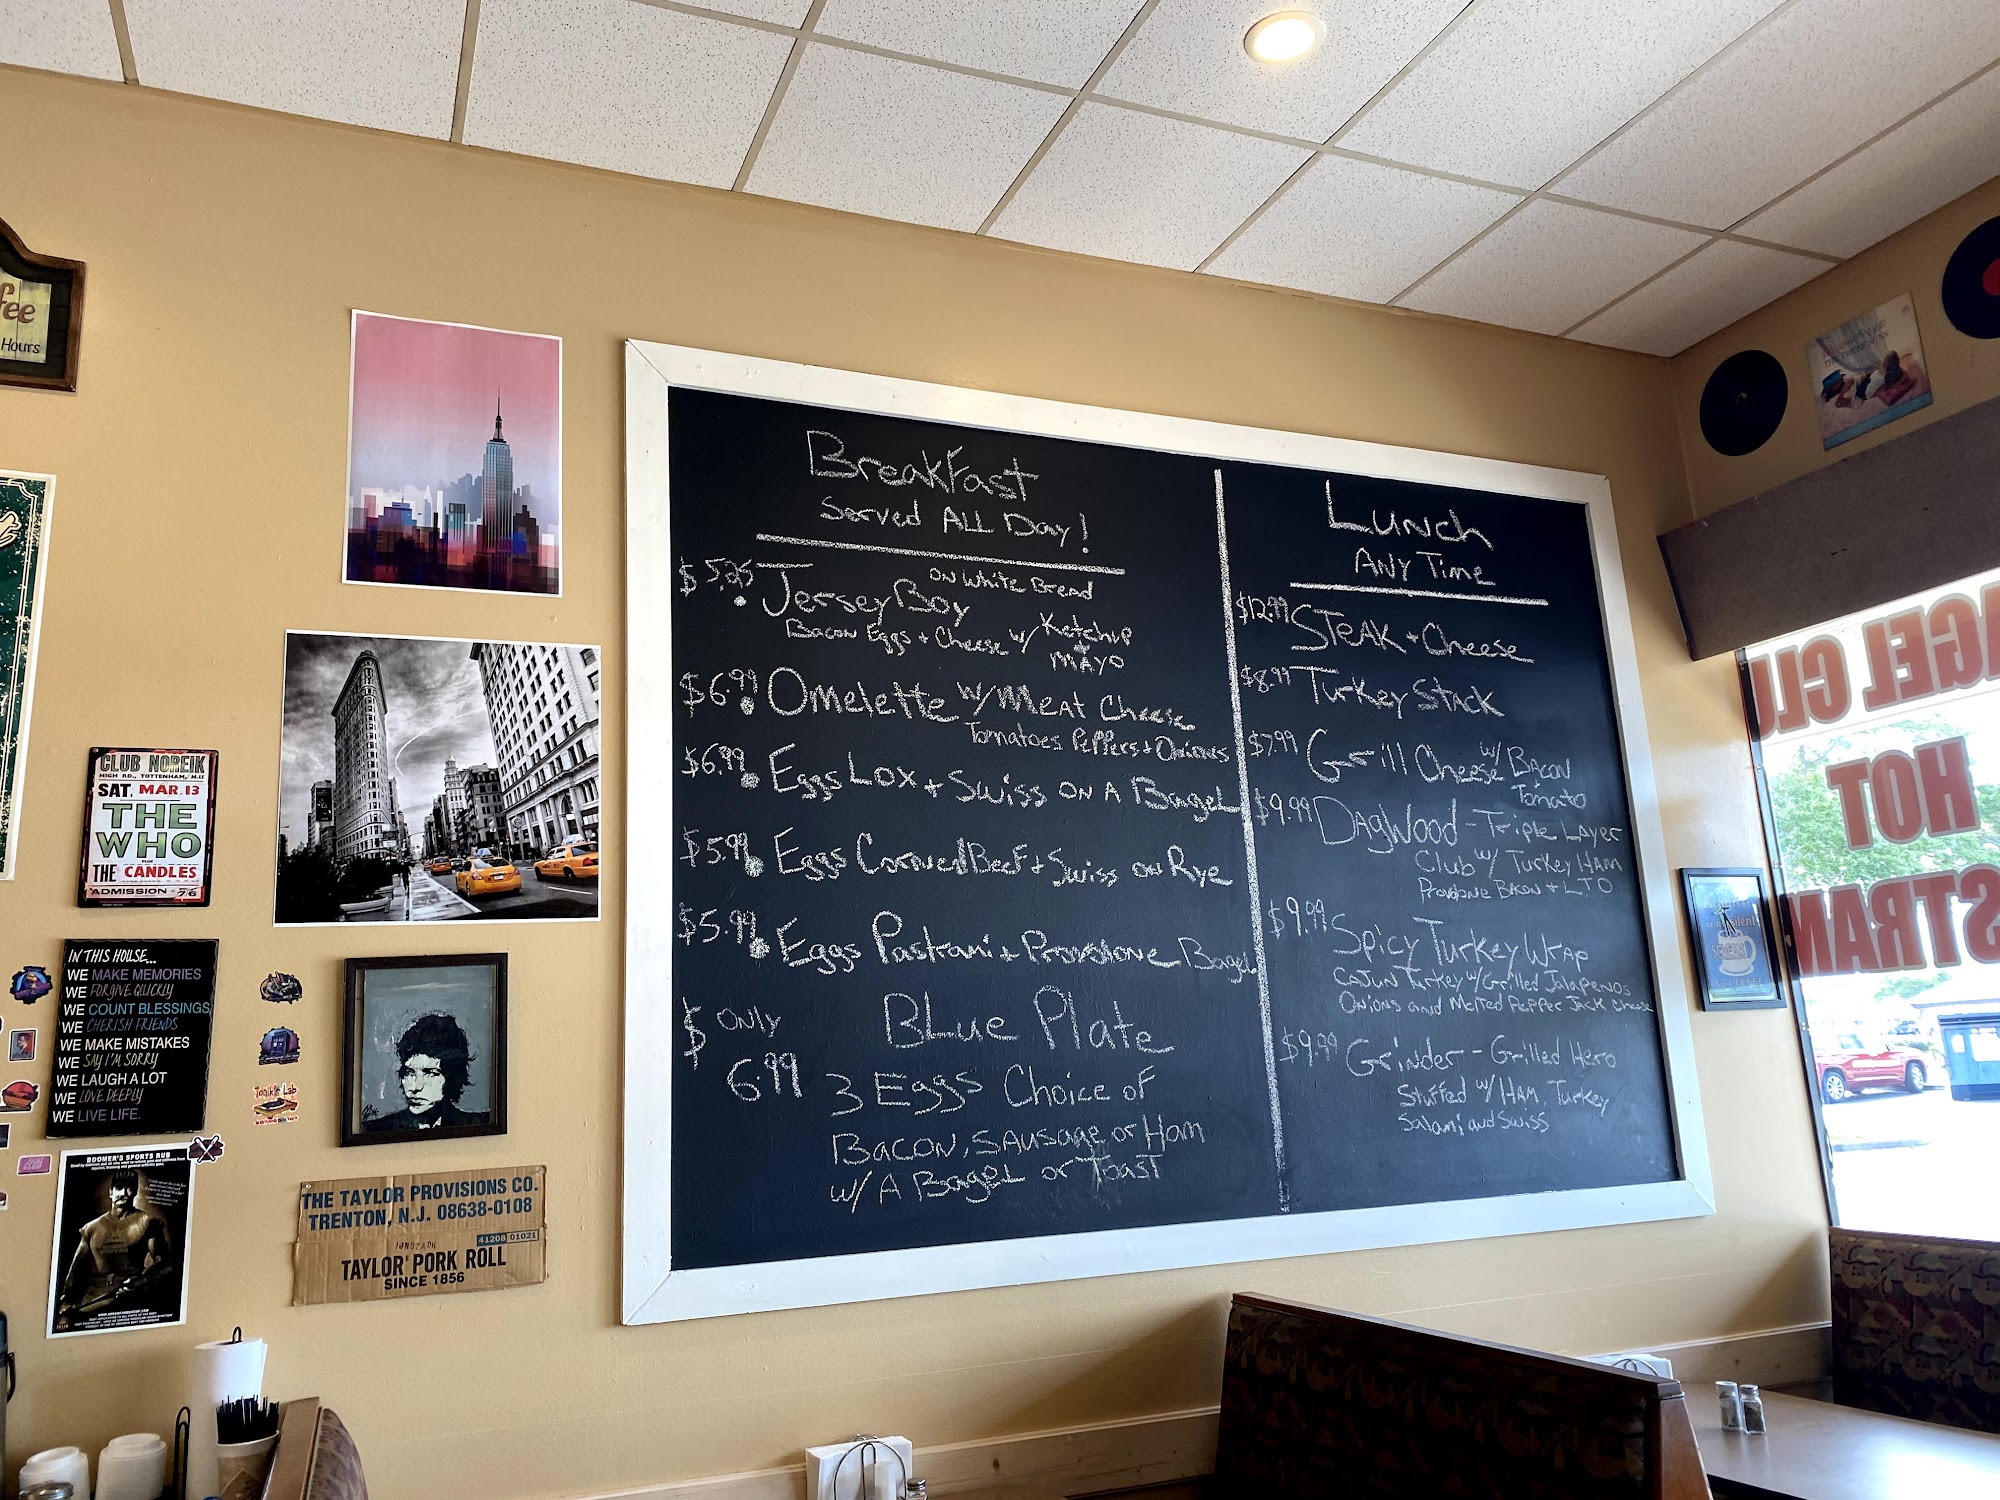 fee
Hours
CLUB NOREIK
HIGH RD., TOTTENHAM, N.15
SAT. MAR.13
THE
WHO
PLUS
THE CANDLES
ADMISSION - 7/6
IN THIS HOUSE...
WE MAKE MEMORIES
WE FORGIVE QUICKLY
WE COUNT BLESSINGS
WE CHERISH FRIENDS
WE MAKE MISTAKES
WE SAY I'M SORRY
WE LAUGH A LOT
WE LOVE DEEPLY
WE LIVE LIFE.
BOOMER'S SPORTS RUB
THE TAYLOR PROVISIONS CO.
TRENTON, N.J. 08638-0108
41208 01021
TAYLOR PORK ROLL
SINCE 1856
BreakFast
Served ALL Day!
$5.25 Jersey Boy on White Bread
Bacon Eggs + Cheese w/ Ketchup
+ MAYO
$6.99 Omelette w/ Meat Cheese
Tomatoes Peppers + Onions
$6.99 Eggs Lox + Swiss on A Bagel
$5.99 Eggs Corned Beef + Swiss on Rye
$5.99 Eggs Pastrami + Provolone Bagel
$ ONLY Blue Plate
6.99 3 Eggs Choice of
Bacon, Sausage or Ham
w/ A Bagel or Toast
Lunch
ANY Time
$12.99 STEAK + Cheese
$8.99 Turkey Stack
$7.99 Grill Cheese w/ Bacon
Tomato
$9.99 DAgWood - Triple Layer
Club w/ Turkey HAM
Provolone Bacon + LTO
$9.99 Spicy Turkey Wrap
CAJUN Turkey w/ Grilled Jalapenos
Onions and Melted Pepper Jack cheese
$9.99 Grinder - Grilled Hero
Stuffed w/ HAM, Turkey
Salami and Swiss
AGEL CLU
HOT
STRAM